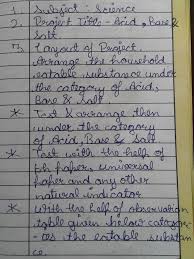 1. Subject - Science
2. Project Title - Acid, Base &
Salt.
3. Layout of Project.
Arrange the household
eatable substance under
the category of Acid,
Base & Salt.
* Test & arrange then
under the category
of Acid, Base & Salt
* Test with the help of
ph paper, universal
paper and any other
natural indicator
* With the help of observation
table given below categor-
ies the eatable substan-
ce.